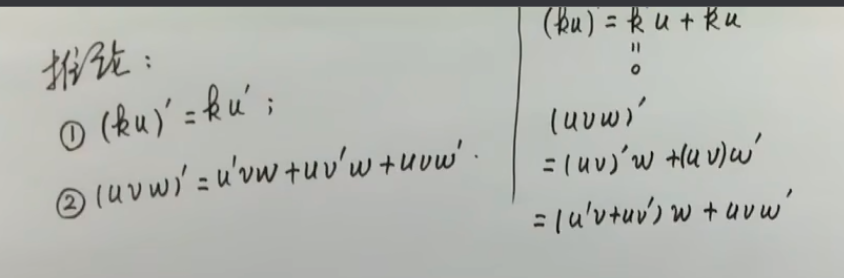 推论：
① (ku)′ = ku′ ;
② (uvw)′ = u′vw + uv′w + uvw′ .
(ku) = k u + ku
=
0
(uvw)′
= (uv)′w + (uv)w′
= (u′v + uv′) w + uvw′